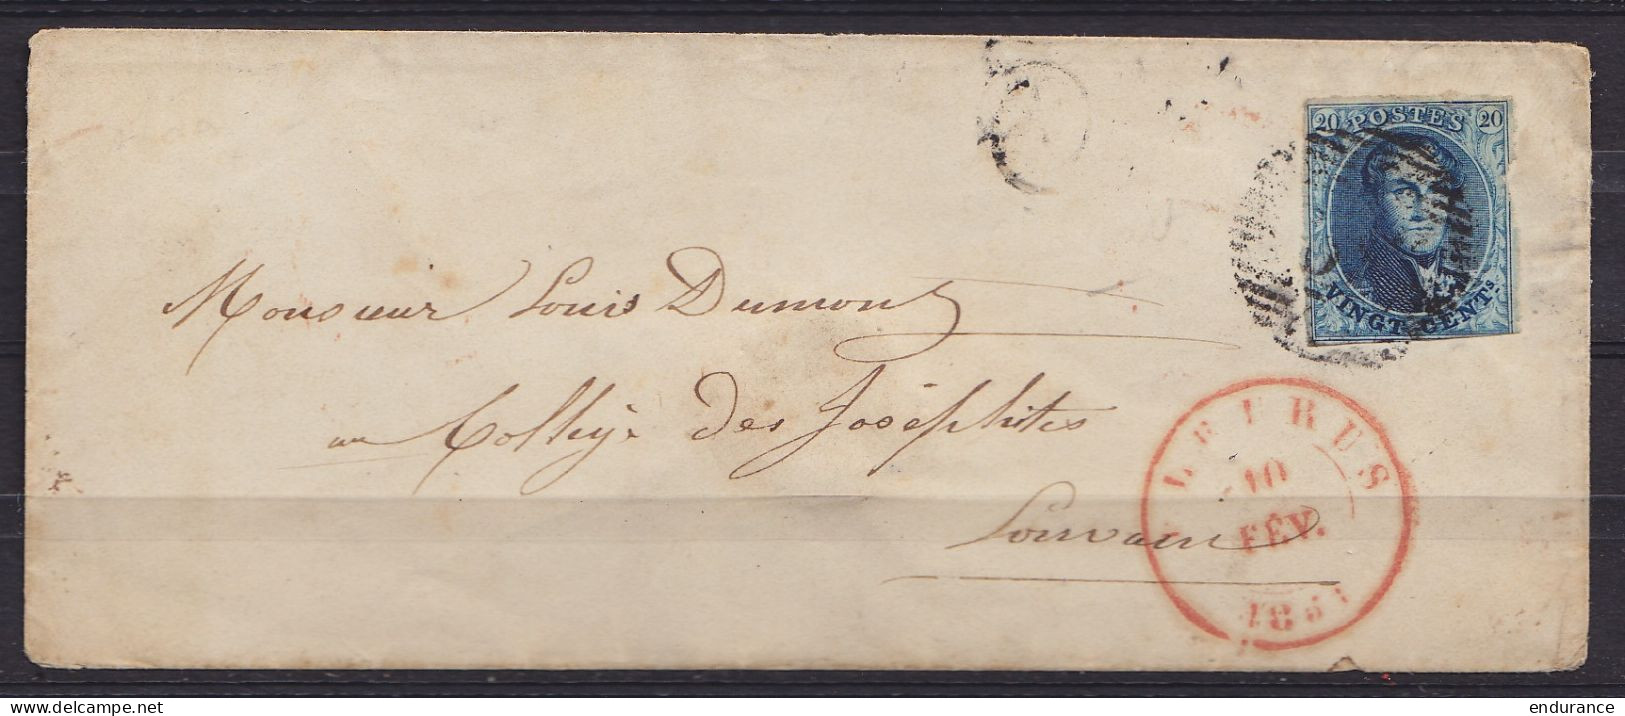 20 POSTES 20
VINGT CENTS.
Monsieur Louis Dumont
au Collége des Joséphites
Louvain
10
FÉV.
delcampe.net
endurance